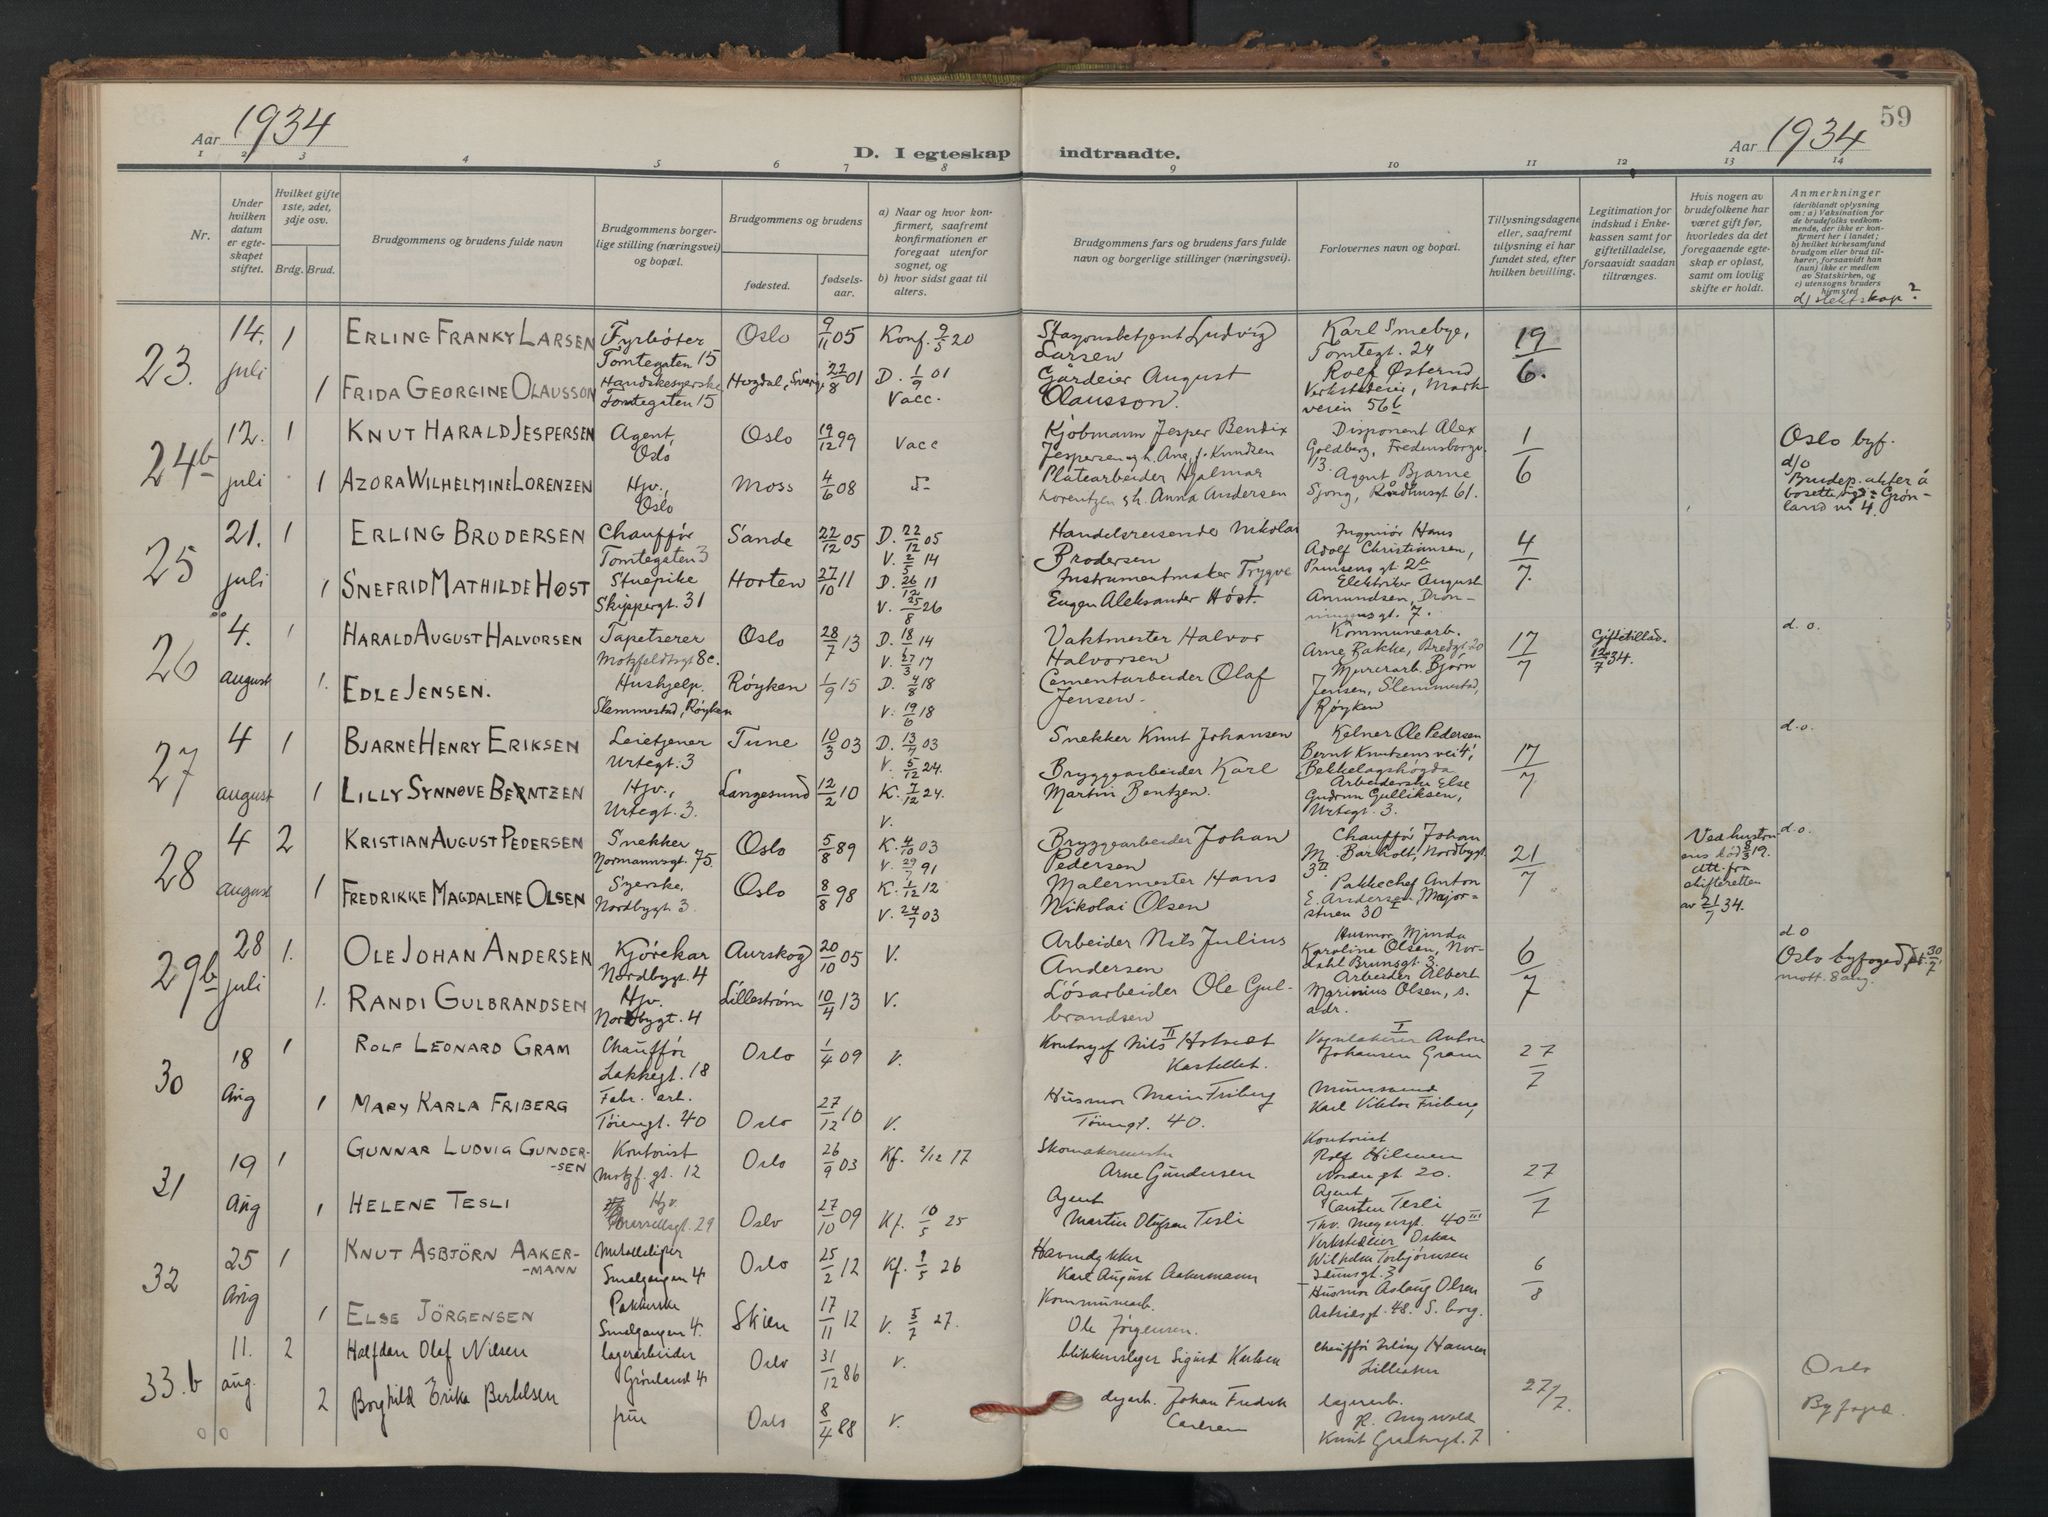 Aar 1934
D. I egteskap indtraadte.
59
Aar 1934
1 2 3 4 5 6 7 8 9 10 11 12 13 14
Nr.
Under hvilken datum er egteskapet stiftet.
Hvilket gifte 1ste, 2det, 3dje osv.
Brdg. Brud.
Brudgommens og brudens fulde navn
Brudgommens borgerlige stilling (næringsvei) og bopæl.
Brudgommens og brudens
fødested. fødselsaar.
a) Naar og hvor konfirmert, saafremt konfirmationen er foregaat utenfor sognet, og
b) hvor sidst gaat til alters.
Brudgommens fars og brudens fars fulde navn og borgerlige stillinger (næringsvei).
Forlovernes navn og bopæl.
Tillysningsdagene eller, saafremt tillysning ei har fundet sted, efter hvilken bevilling.
Legitimation for indskud i Enkekassen samt for giftetilladelse, forsaavidt saadan tiltrænges.
Hvis nogen av brudefolkene har været gift før, hvorledes da det foregaaende egteskap er opløst, samt om lovlig skifte er holdt.
Anmerkninger (deriblandt oplysning om: a) Vaksination for de brudefolks vedkommende, der ikke er konfirmert her i landet; b) hvilket kirkesamfund brudgom eller brud tilhører, forsaavidt han (hun) ikke er medlem av Statskirken, og c) utensogns bruders hjemsted
d) slektskap?
23. 14. juli 1 ERLING FRANKY LARSEN Fyrbøter Tomtegaten 15 Oslo 9/11 05 Konf. 9/5 20 Stasjonsbetjent Ludvig Larsen Karl Smebye, Tomtegt. 24 19/6.
1 FRIDA GEORGINE OLAUSSON Handskesyerske Tomtegaten 15 Hogdal, Sverige 22/8 01 D. 1/9 01 Vacc. Gårdeier August Olausson. Rolf Østerud Verkstedeier, Markveien 56b
24b 12. juli 1 KNUT HARALD JESPERSEN Agent, Oslo Oslo 19/12 99 Vacc Kjøbmann Jesper Bendix Jespersen og h. Ane f. Knudsen Disponent Alex Goldberg, Fredensborgv. 13. 1/6 Oslo byf.
d/o
1 AZORA WILHELMINE LORENZEN Hjv., Oslo Moss 4/6 08 Platearbeider Hjalmar Lorentzen og h. Anna Andersen Agent Bjarne Sjong, Rådhusgt 61. Brudep. akter å bosette sig i Grønland nr 4.
25 21. juli 1 ERLING BRODERSEN Chauffør Tomtegaten 3 Sande 22/12 05 D. 22/12 05 V. 2/5 14 Handelsreisende Nikolai Brodersen Ingeniør Hans Adolf Christiansen, Prinsens gt 2b 4/7.
1 SNEFRID MATHILDE HØST Stuepike Skippergt. 31 Horten 27/10 11 D. 26/12 11 V. 25/8 26 Instrumentmaker Trygve Eugen Aleksander Høst. Elektriker August Amundsen, Dronningensgt. 7.
26 4. august 1 HARALD AUGUST HALVORSEN Tapetserer Motzfeldtsgt 8c. Oslo 28/7 13 D. 18/1 14 V. 27/3 17 Vaktmester Halvor Halvorsen Kommunearb. Arne Bakke, Bredgt 20 17/7 Giftetillad. 12/7 34. d. o.
1. EDLE JENSEN. Hushjelp. Slemmestad, Røyken Røyken 1/9 15 D. 4/8 18 V. 19/6 18 Cementarbeider Olaf Jensen. Murerarb. Bjørn Jensen, Slemmestad, Røyken
27 4 august 1 BJARNE HENRY ERIKSEN Leietjener Urtegt. 3 Tune 10/3 03 D. 13/7 03 V. 5/12 24. Snekker Knut Johansen Kelner Ole Pedersen Bernt Knutsens vei 4, Bekkelagshøgda 17/7 d.o.
1 LILLY SYNNØVE BERNTZEN Hjv., Urtegt. 3. Langesund 12/2 10 K. 7/12 24. V. Bryggearbeider Karl Martin Bentzen. Arbeiderske Else Gudrun Gulliksen, Urtegt. 3.
28 4 august 2 KRISTIAN AUGUST PEDERSEN Snekker Normannsgt. 75 Oslo 5/8 89 K. 4/10 03 V. 29/7 91 Bryggearbeider Johan Pedersen Chauffør Johan M. Barholt, Nordbygt. 3 II 21/7 Ved hustruens død 8/3 19. Att. fra skifteretten av 21/7 34. d.o.
1 FREDRIKKE MAGDALENE OLSEN Syerske, Nordbygt. 3 Oslo 8/8 98 K. 1/12 12 V. 24/7 03 Malermester Hans Nikolai Olsen Pakkechef Anton E. Andersen, Majorstuen 30 I
29b 28 juli 1. OLE JOHAN ANDERSEN Kjørekar Nordbygt. 4 Aurskog 20/10 05 V. Arbeider Nils Julius Andersen Husmor Minda Karoline Olsen, Nordahl Brunsgt. 3. 6/7 d o
Oslo byfoged 30/7, mott. 8 aug.
1. RANDI GULBRANDSEN Hjv. Nordbygt. 4 Lillestrøm 10/4 13 V. Løsarbeider Ole Gulbrandsen Arbeider Albert Marinius Olsen, s. adr.
30 18 Aug 1 ROLF LEONARD GRAM Chauffør Lakkegt. 18 Oslo 1/4 09 V. II Nils Kastellet. I Anton Johansen Gram 27/7
1 MARY KARLA FRIBERG Fabr. arb. Tøiengt. 40 Oslo 27/12 10 V. Husmor Friberg Tøiengt. 40. Karl Viktor Friberg,
31 19 Aug 1 GUNNAR LUDVIG GUNDERSEN Kontorist Motzf. gt. 12 Oslo 26/9 03 Kf. 2/12 17 Skomakermester Arne Gundersen Kontorist Rolf Nordregt 20. 27/7
1 HELENE TESLI Hjv. Oslo 27/10 09 Kf. 10/5 25 Agent Martin Olufsen Tesli Agent Carsten Tesli Thv. Meyersgt. 40 III
32 25 Aug 1 KNUT ASBJÖRN AAKERMANN Metallsliper Smalgangen 4 Oslo 25/2 12 Kf. 9/5 26 Havnedykker Karl August Aakermann Verkstedeier Oskar Wilhelm Torbjørnsen Idunsgt. 3 6/8
1 ELSE JÖRGENSEN Pakkerske Smalgangen 4. Skien 17/11 12 V. 5/7 27. Kommunearb. Ole Jørgensen. Husmor Aslaug Olsen Astridsgt. 48. S. borg.
33.b 11. aug. 2 Halfdan Olaf Nilsen lagerarbeider Grønland 4 Oslo 31/12 86 V. blikkenslager Sigurd Karlsen chauffør Erling Hansen Lilleaker 27/7. Oslo Byfogd.
2 Borghild Erika Bertelsen frue Oslo 8/4 88 V. Johan Fredrik Carlsen lagerarb. R. Knut Gt. 7